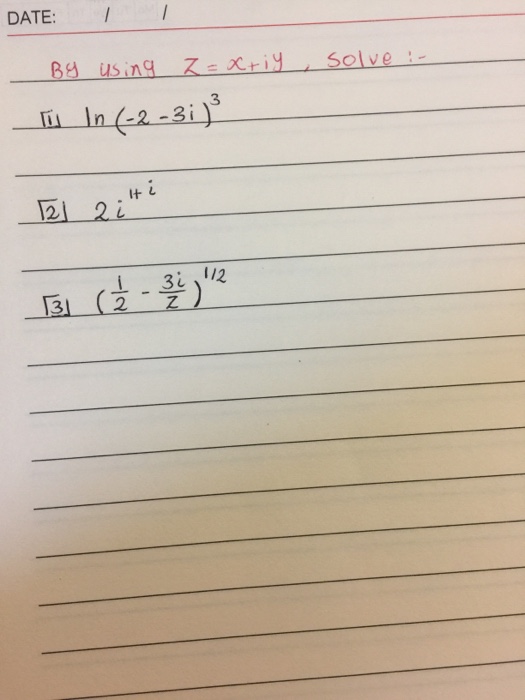 DATE: / /
By using Z = x+iy, solve :-
[1] ln (-2 -3i)^3
[2] 2i^1+i
[3] (1/2 - 3i/Z)^1/2